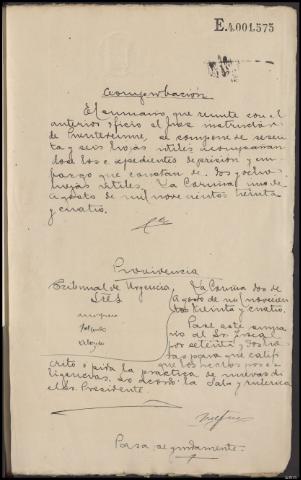 E.4.001.575
Comprobación
El sumario, que remite con el
anterior oficio el juez instructor
de Puentedeume, se compone de sesen
ta y seis hojas útiles acompañán
dose los expedientes de prision y em-
bargo que constan de dos y ocho
hojas útiles. La Coruña, uno de
Agosto de mil novecientos treinta
y cuatro.
Providencia
Tribunal de Urgencia,
Sres.
La Coruña dos de
Agosto de mil novecien
tos treinta y cuatro.
Pase este suma
rio al Sr. Fiscal
por setenta y dos ho
ras para que califi
que los hechos por es
crito o pida la práctica de nuevas di
ligencias. Lo acordó la Sala y rubrica
el Sr. Presidente.
Pasa seguidamente.